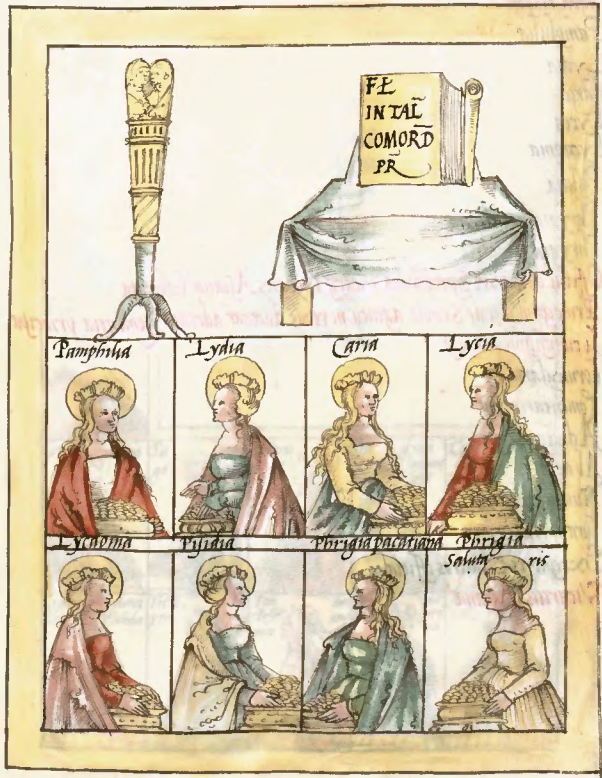 FL
INTAL̄
COMORD̄
PR̄
Pamphilia Lydia Caria Lycia
Lycaonia Pisidia Phrigia pacatiana Phrigia
Saluta ris